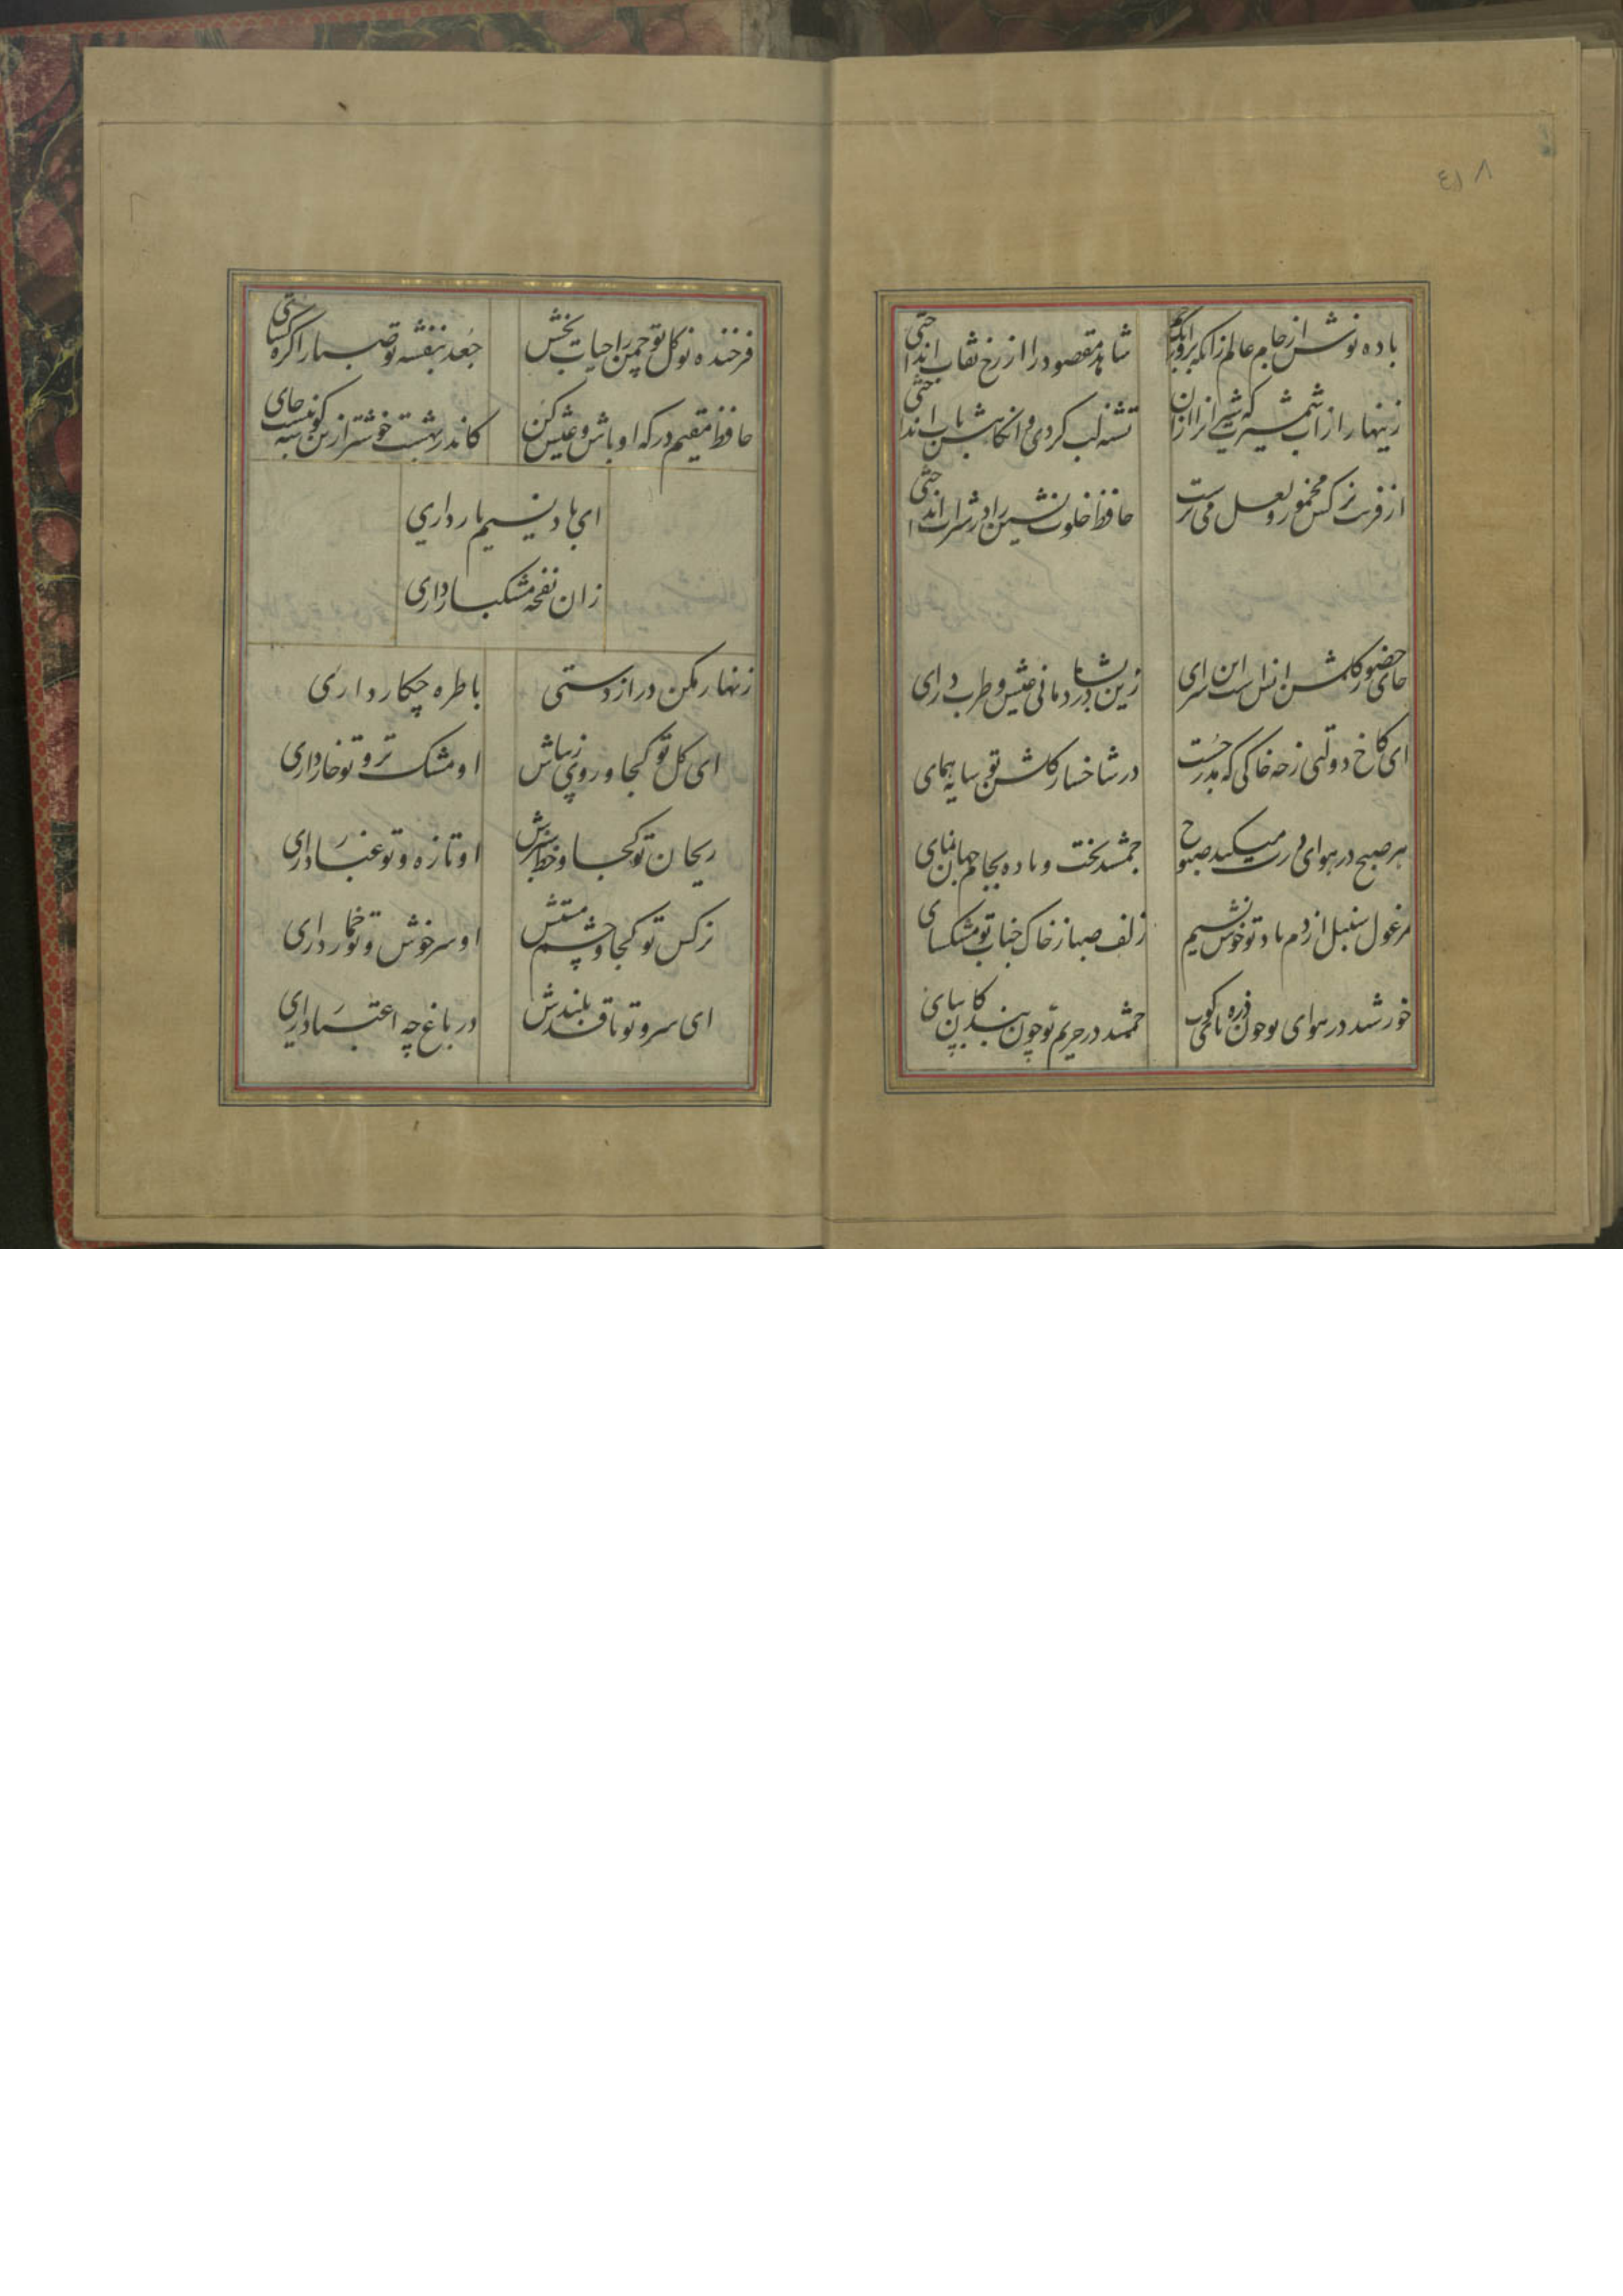 ٤١٨
باده نوش از جام عالم زانکه بر اورنک جم
شاهد مقصود را از رخ نقاب انداختی
زینهار از آب شمشیرت که شیران را از آن
تشنه لب کردی و انگاهش باب انداختی
از فریب نرکس مخمور و لعل می پرست
حافظ خلوت نشین را در شراب انداختی
جای حضور و کلشن انس است این سرای
زین در بشادمانی و عیش و طرب درای
ای کاخ دولتی زچه خاکی که مدر جست
در شاخسار کلشن تو سایه همای
هر صبح در هوای درت میکند صبوح
جمشید تخت و باده بجام جهان نمای
مرغول سنبل از دم باد تو خوش نسیم
زلف صبا ز خاک جناب تو مشکسای
خورشید در هوای تو چون ذره پای کوب
جمشید در حریم تو چون بندکان بپای
فرخنده نو کل تو چمن را حیات بخش
جعد بنفشه تو صبا را کره کشای
حافظ مقیم درکه او باش و عیش کن
کاندر بهشت خوشتر ازین کوشه نیست جای
ای باد نسیم یار داری
زان نفحه مشکبار داری
زنهار مکن دراز دستی
با طره چکار داری
ای کل تو کجا و روی زیباش
او مشک تر و تو خار داری
ریحان تو کجا و خط سبزش
او تازه و تو غبار داری
نرکس تو کجا و چشم مستش
او سرخوش و تو خمار داری
ای سرو تو با قد بلندش
در باغ چه اعتبار داری